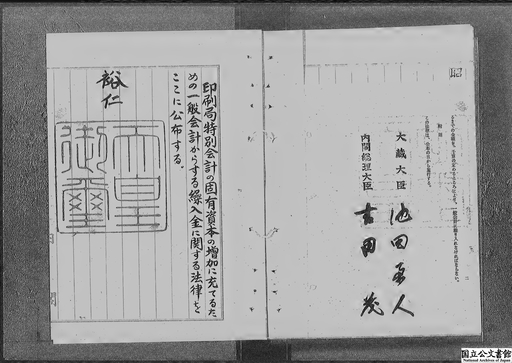 印刷局特別会計の固有資本の増加に充てるた
めの一般会計からする繰入金に関する法律を
ここに公布する。
裕仁
天皇
御璽
附則
この法律は、公布の日から施行する。
大蔵大臣 池田勇人
内閣総理大臣 吉田茂
国立公文書館
National Archives of Japan